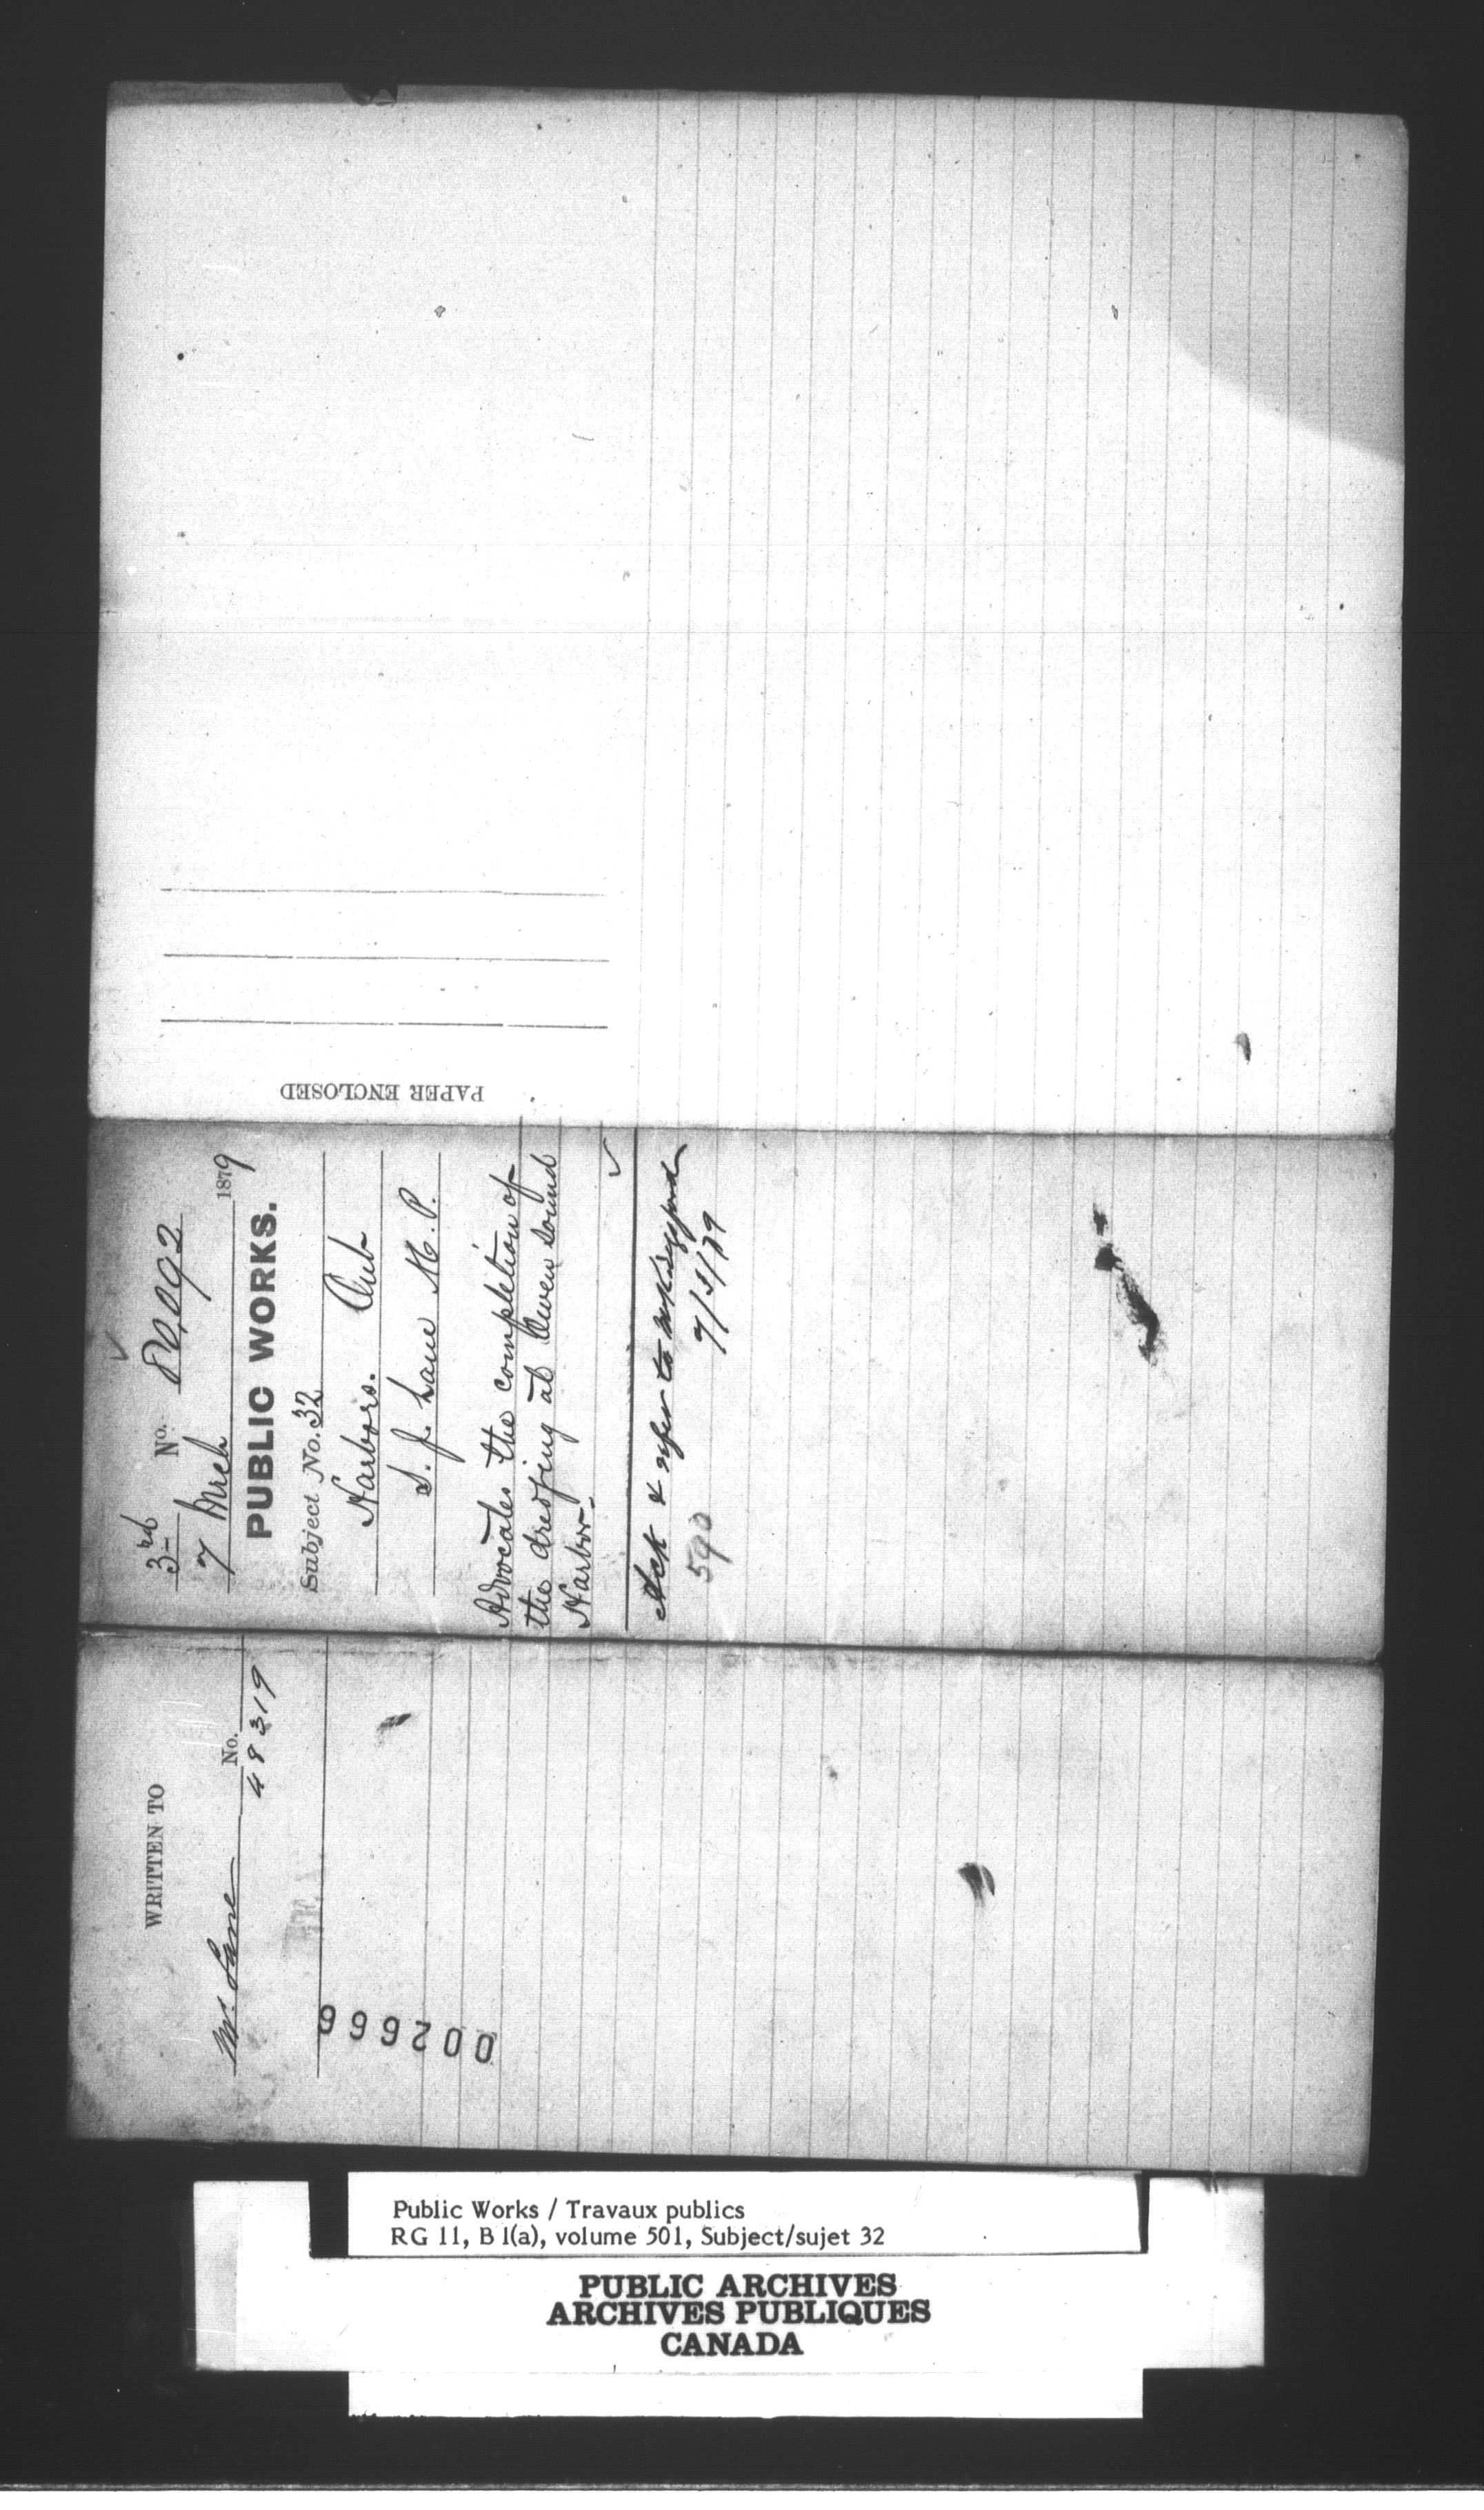 3rd No. 80,092
7 Mrch 1879
PUBLIC WORKS.
Subject No. 32
Harbors. Ont
S. J. Lane M.P.
Advocates the completion of
the dredging at Owen Sound
Harbor.
Ack & refer to
7/3/79
590
PAPER ENCLOSED
WRITTEN TO
Mr. Lane No. 48319
002666
Public Works / Travaux publics
RG 11, B 1(a), volume 501, Subject/sujet 32
PUBLIC ARCHIVES
ARCHIVES PUBLIQUES
CANADA